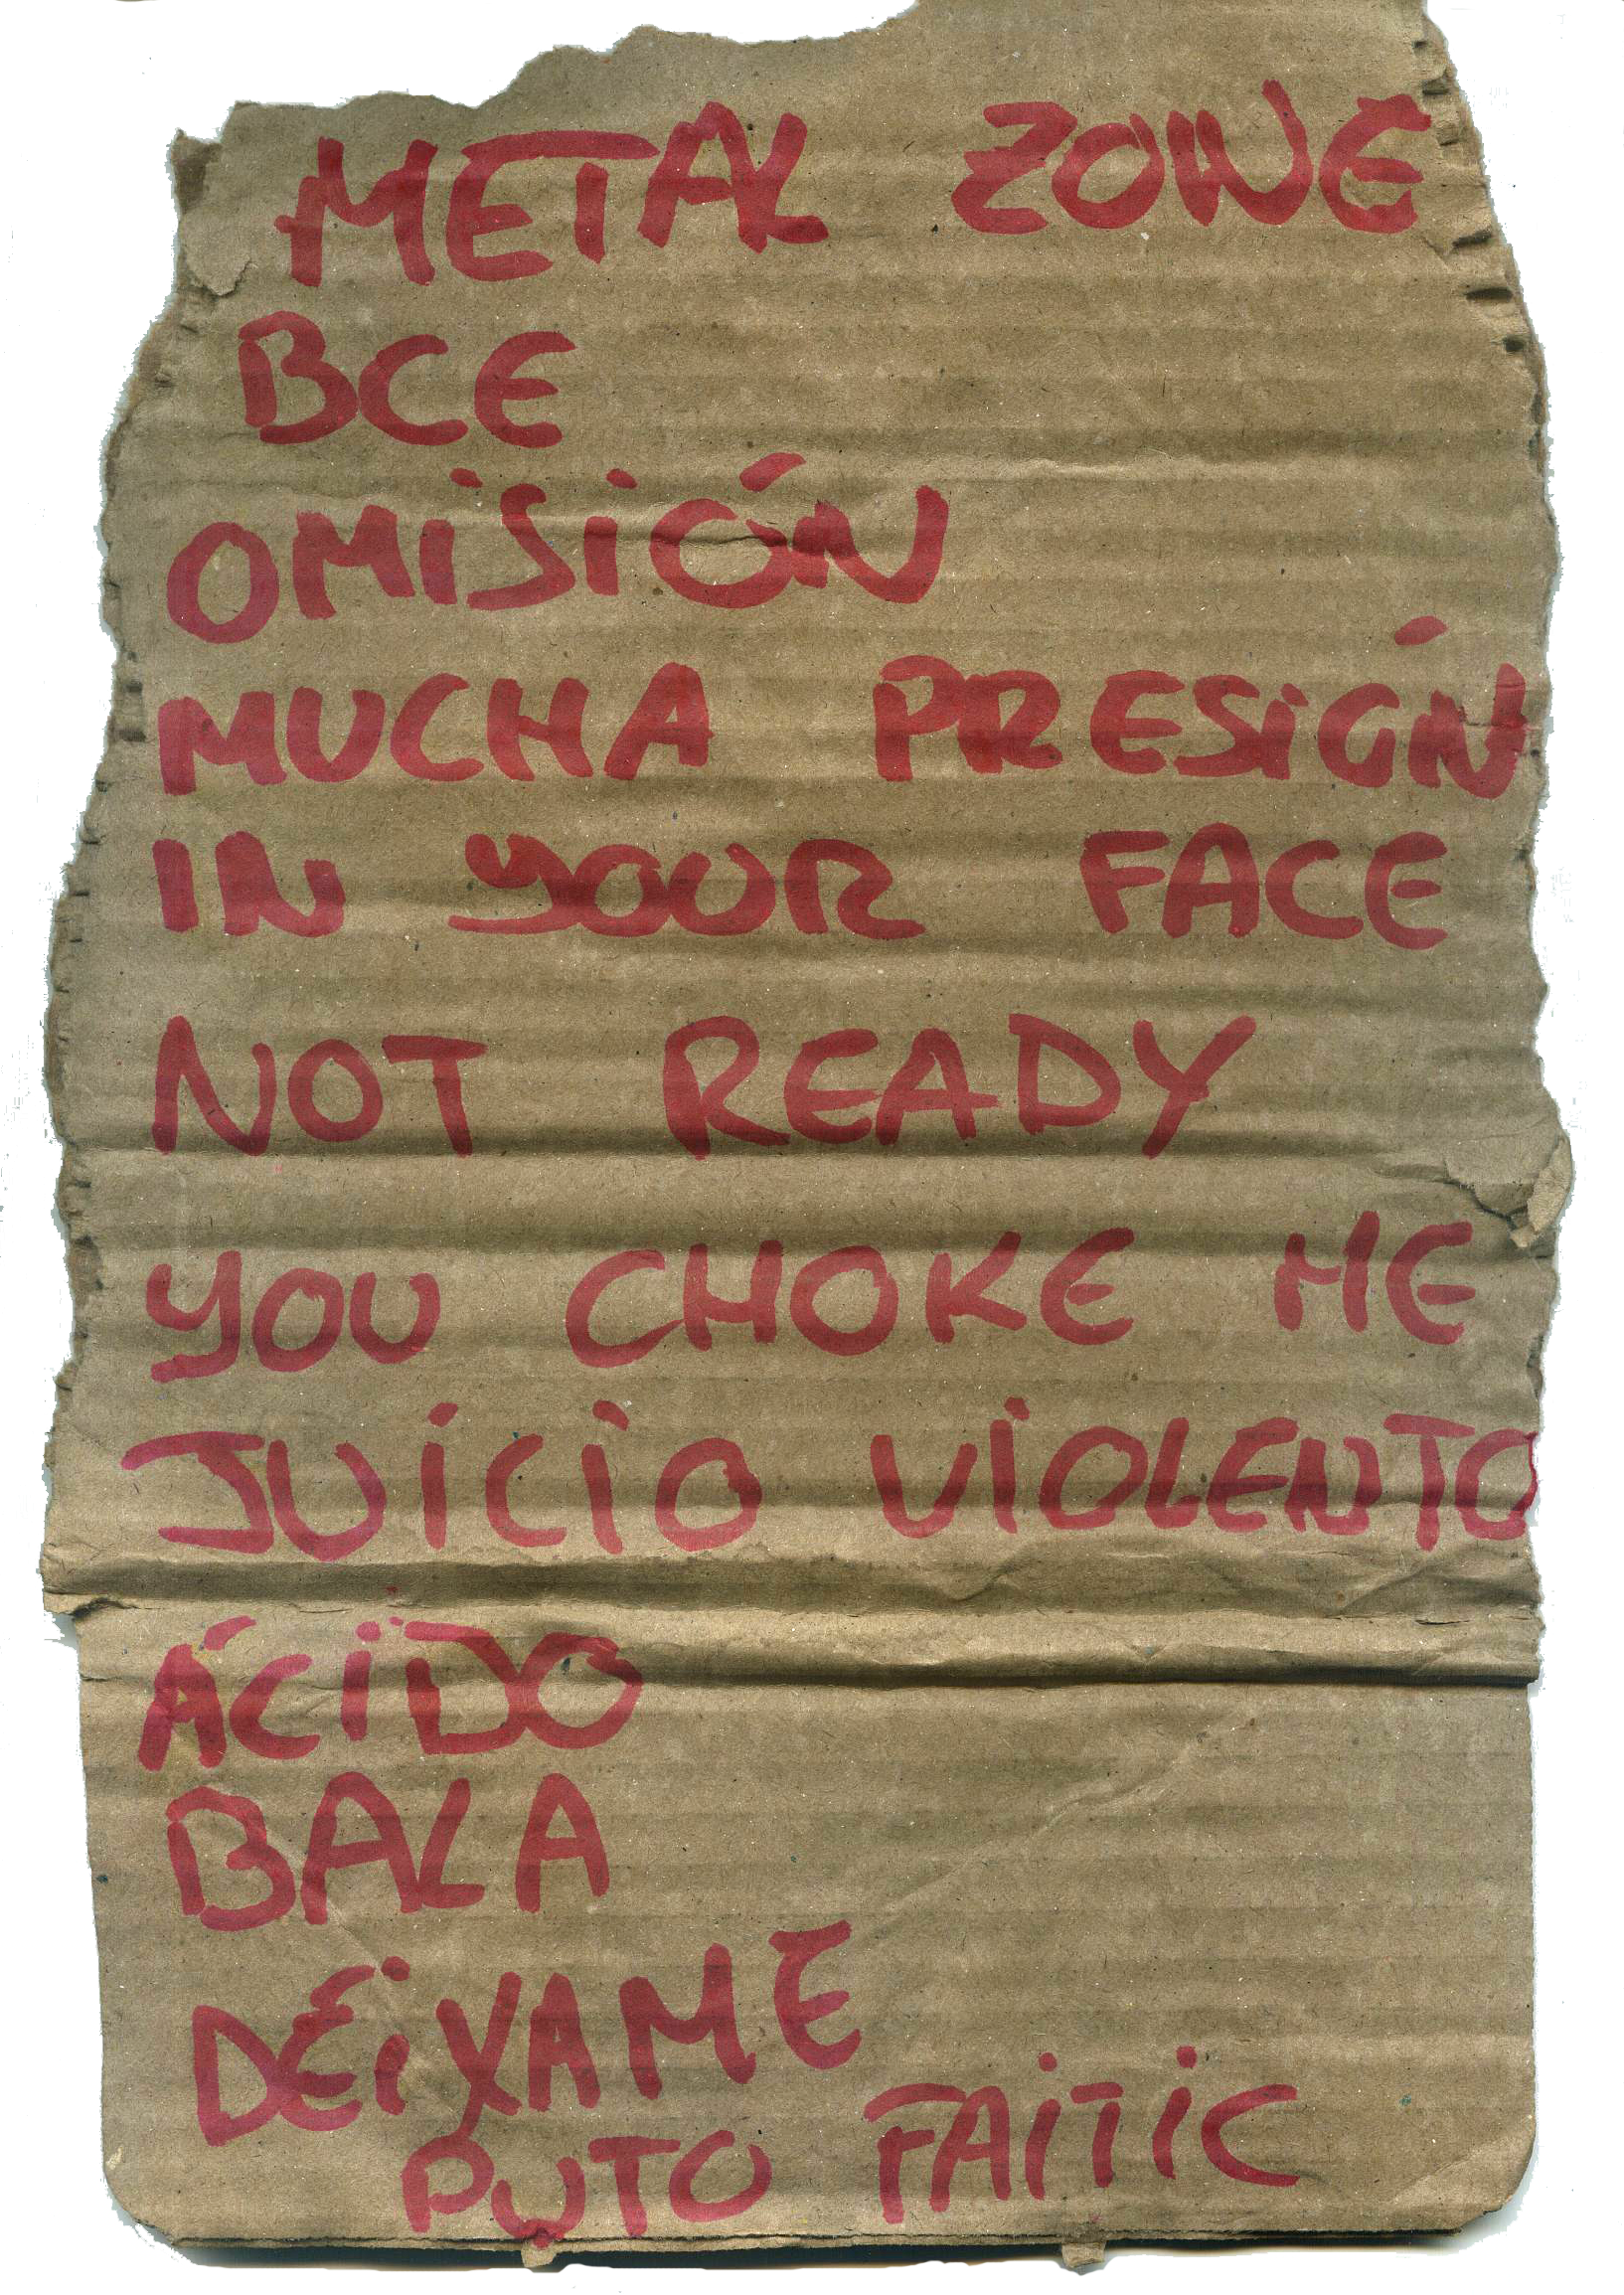 METAL ZONE
BCE
OMISIÓN
MUCHA PRESIÓN
IN YOUR FACE
NOT READY
YOU CHOKE ME
JUICIO VIOLENTO
ÁCIDO
BALA
DÉIXAME
PUTO FAITIC